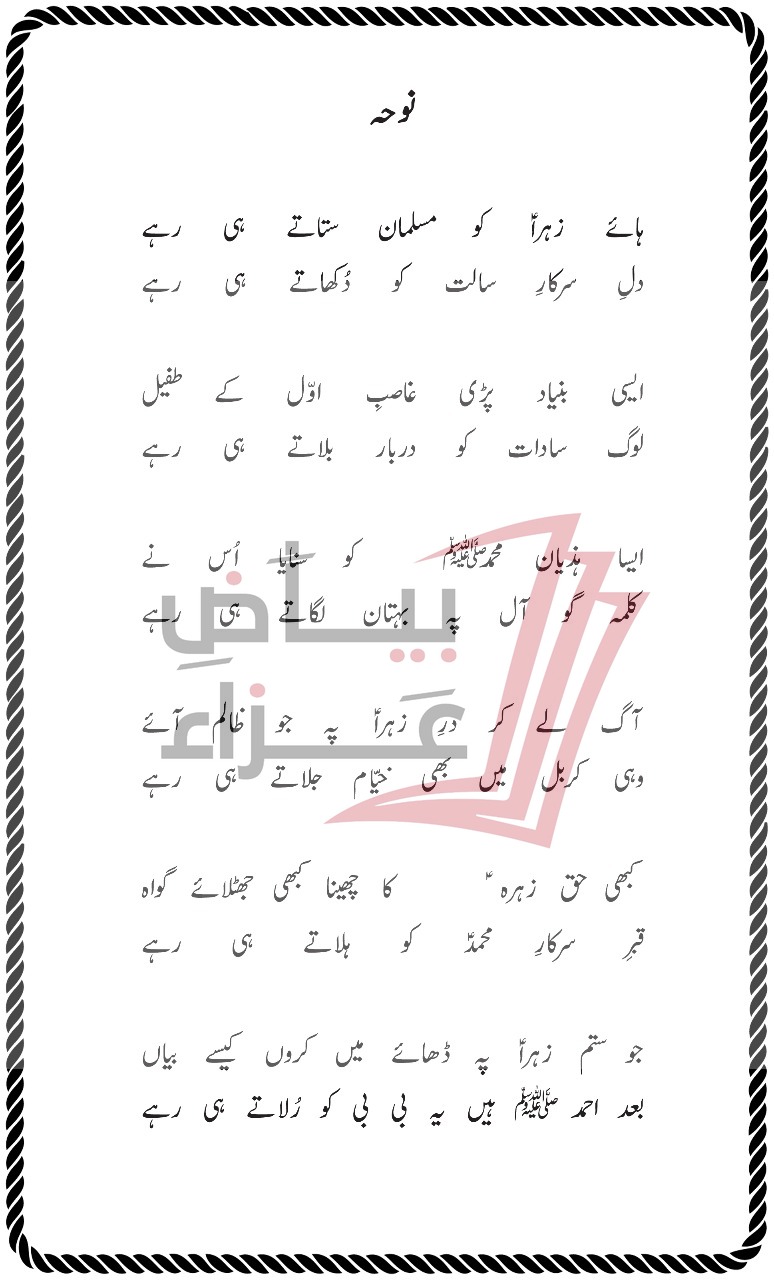 نوحہ
ہائے زہراؑ کو مسلمان ستاتے ہی رہے
دلِ سرکارِ سالت کو دُکھاتے ہی رہے
ایسی بنیاد پڑی غاصبِ اوّل کے طفیل
لوگ سادات کو دربار بلاتے ہی رہے
ایسا ہذیان محمدﷺ کو سنایا اُس نے
کلمہ گو آل پہ بہتان لگاتے ہی رہے
آگ لے کر درِ زہراؑ پہ جو ظالم آئے
وہی کربل میں بھی خیّام جلاتے ہی رہے
کبھی حق زہرہ ؑ کا چھینا کبھی جھٹلائے گواہ
قبرِ سرکارِ محمدؐ کو ہلاتے ہی رہے
جو ستم زہراؑ پہ ڈھائے میں کروں کیسے بیاں
بعد احمد ﷺ ہیں یہ بی بی کو رُلاتے ہی رہے
بیاضِ
عَزاء